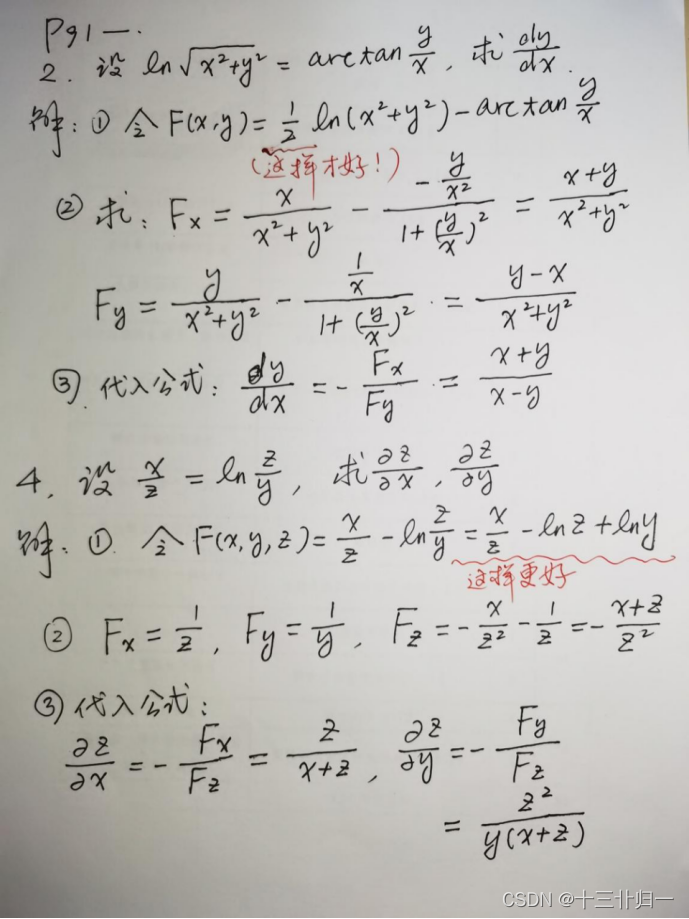 P91一.
2. 设 ln√(x²+y²) = arctan y/x, 求 dy/dx.
解: ① 令 F(x,y) = 1/2 ln(x²+y²) - arctan y/x
(这样才好!)
② 求: Fx = x/(x²+y²) - (-y/x²)/(1+(y/x)²) = (x+y)/(x²+y²)
Fy = y/(x²+y²) - (1/x)/(1+(y/x)²) = (y-x)/(x²+y²)
③. 代入公式: dy/dx = - Fx/Fy = (x+y)/(x-y)
4. 设 x/z = ln z/y, 求 ∂z/∂x, ∂z/∂y
解: ①. 令 F(x,y,z) = x/z - ln z/y = x/z - lnz + lny
这样更好
② Fx = 1/z, Fy = 1/y, Fz = - x/z² - 1/z = - (x+z)/z²
③ 代入公式:
∂z/∂x = - Fx/Fz = z/(x+z), ∂z/∂y = - Fy/Fz
= z²/(y(x+z))
CSDN @十三卝归一